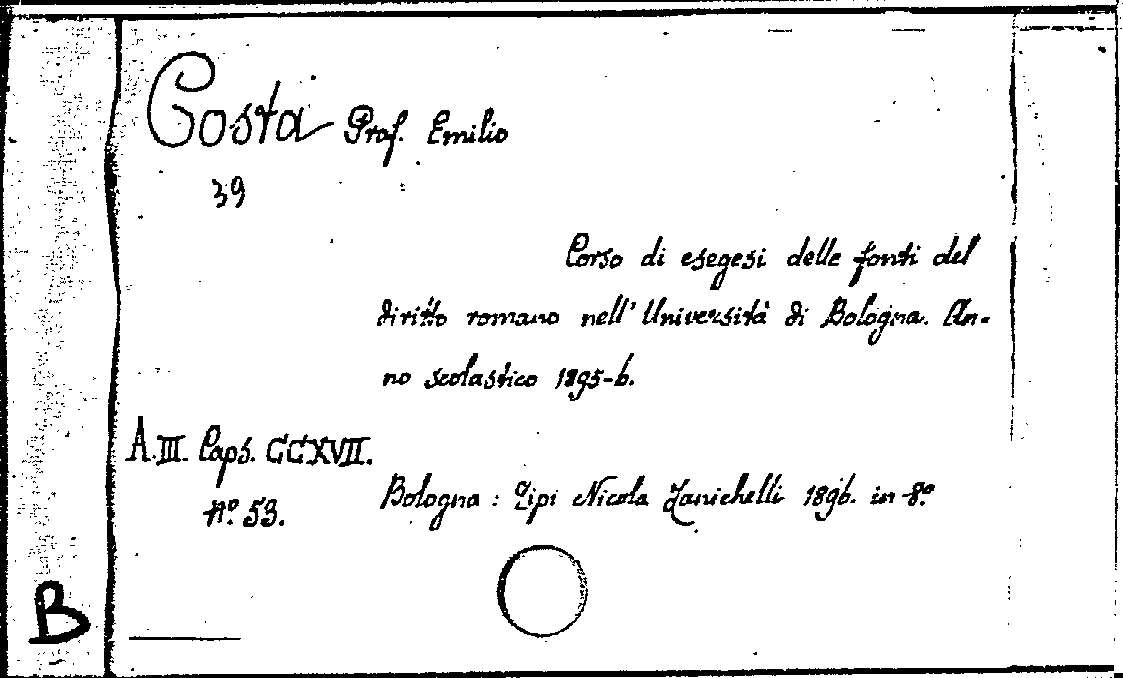 Costa Prof. Emilio
39
Corso di esegesi delle fonti del
diritto romano nell' Università di Bologna. An-
no scolastico 1895-6.
A.III. Caps. CCXVII.
nº 53.
Bologna : Tipi Nicola Zanichelli 1896. in 8º
B